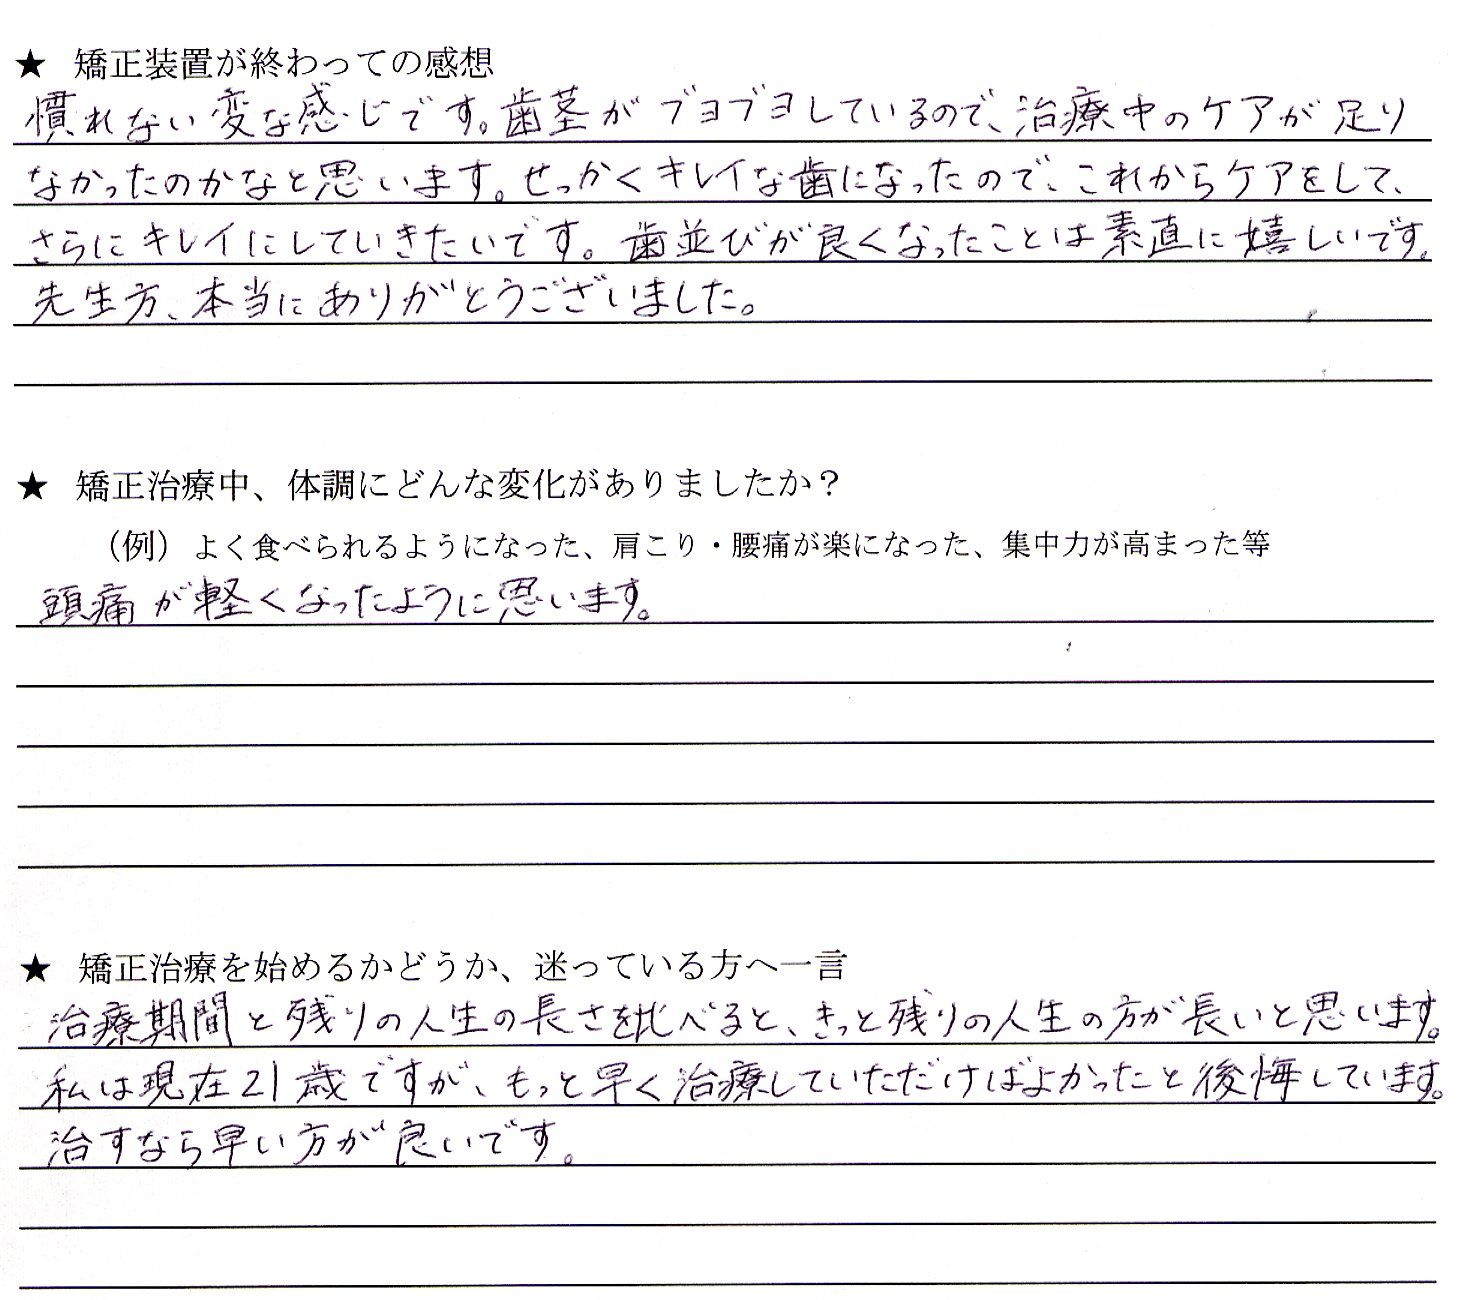 ★ 矯正装置が終わっての感想
慣れない変な感じです。歯茎がブヨブヨしているので、治療中のケアが足り
なかったのかなと思います。せっかくキレイな歯になったので、これからケアをして、
さらにキレイにしていきたいです。歯並びが良くなったことは素直に嬉しいです。
先生方、本当にありがとうございました。
★ 矯正治療中、体調にどんな変化がありましたか？
（例）よく食べられるようになった、肩こり・腰痛が楽になった、集中力が高まった等
頭痛が軽くなったように思います。
★ 矯正治療を始めるかどうか、迷っている方へ一言
治療期間と残りの人生の長さを比べると、きっと残りの人生の方が長いと思います。
私は現在21歳ですが、もっと早く治療していただけばよかったと後悔しています。
治すなら早い方が良いです。